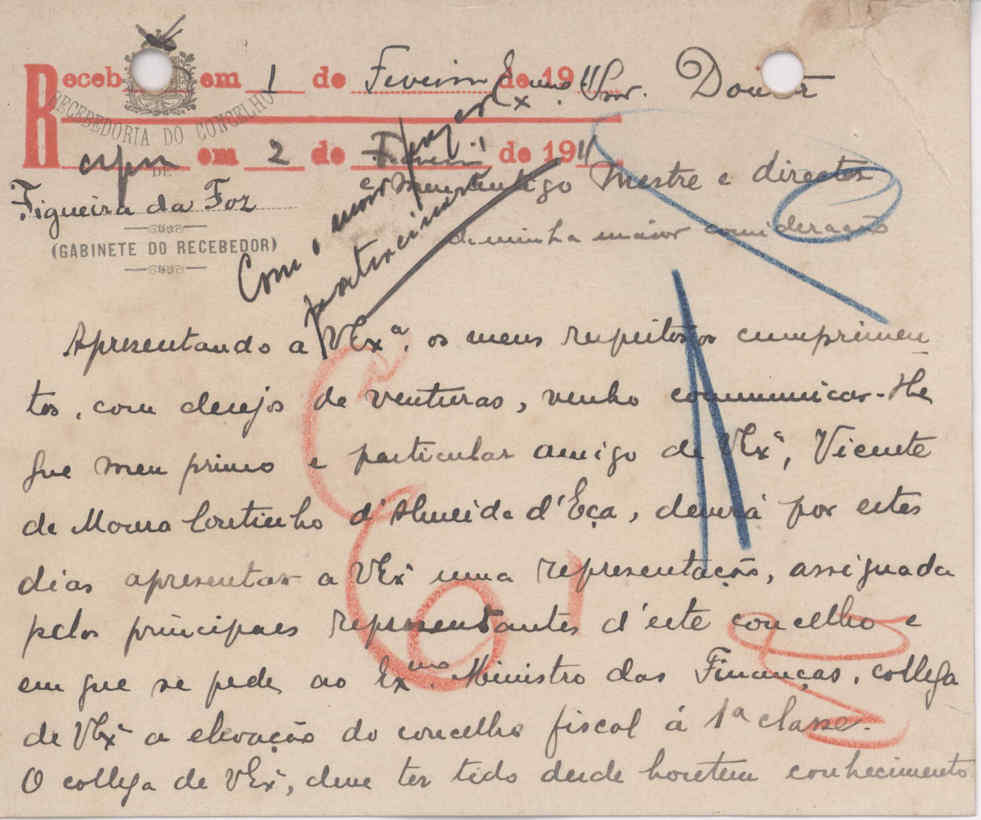 Receb em 1 de Fevereiro de 1911
RECEBEDORIA DO CONCELHO
DE
Figueira da Foz
(GABINETE DO RECEBEDOR)
Resp em 2 de Fevereiro de 1911
Com o maior prazer
patrocinarei
Exmo. Snr. Doutor
e meu antigo Mestre e director
de minha maior consideração
Apresentando a VExª. os meus respeitosos cumprimen
tos, com desejos de venturas, venho communicar-lhe
que meu primo e particular amigo de VExª, Vicente
de Moura Coutinho d'Almeida d'Eça, deverá por estes
dias apresentar a VExª uma representação, assignada
pelos principaes representantes d'este concelho e
em que se pede ao Exmo. Ministro das Finanças, collega
de VExª a elevação do concelho fiscal á 1ª classe.
O collega de VExª, deve ter tido desde hontem conhecimento